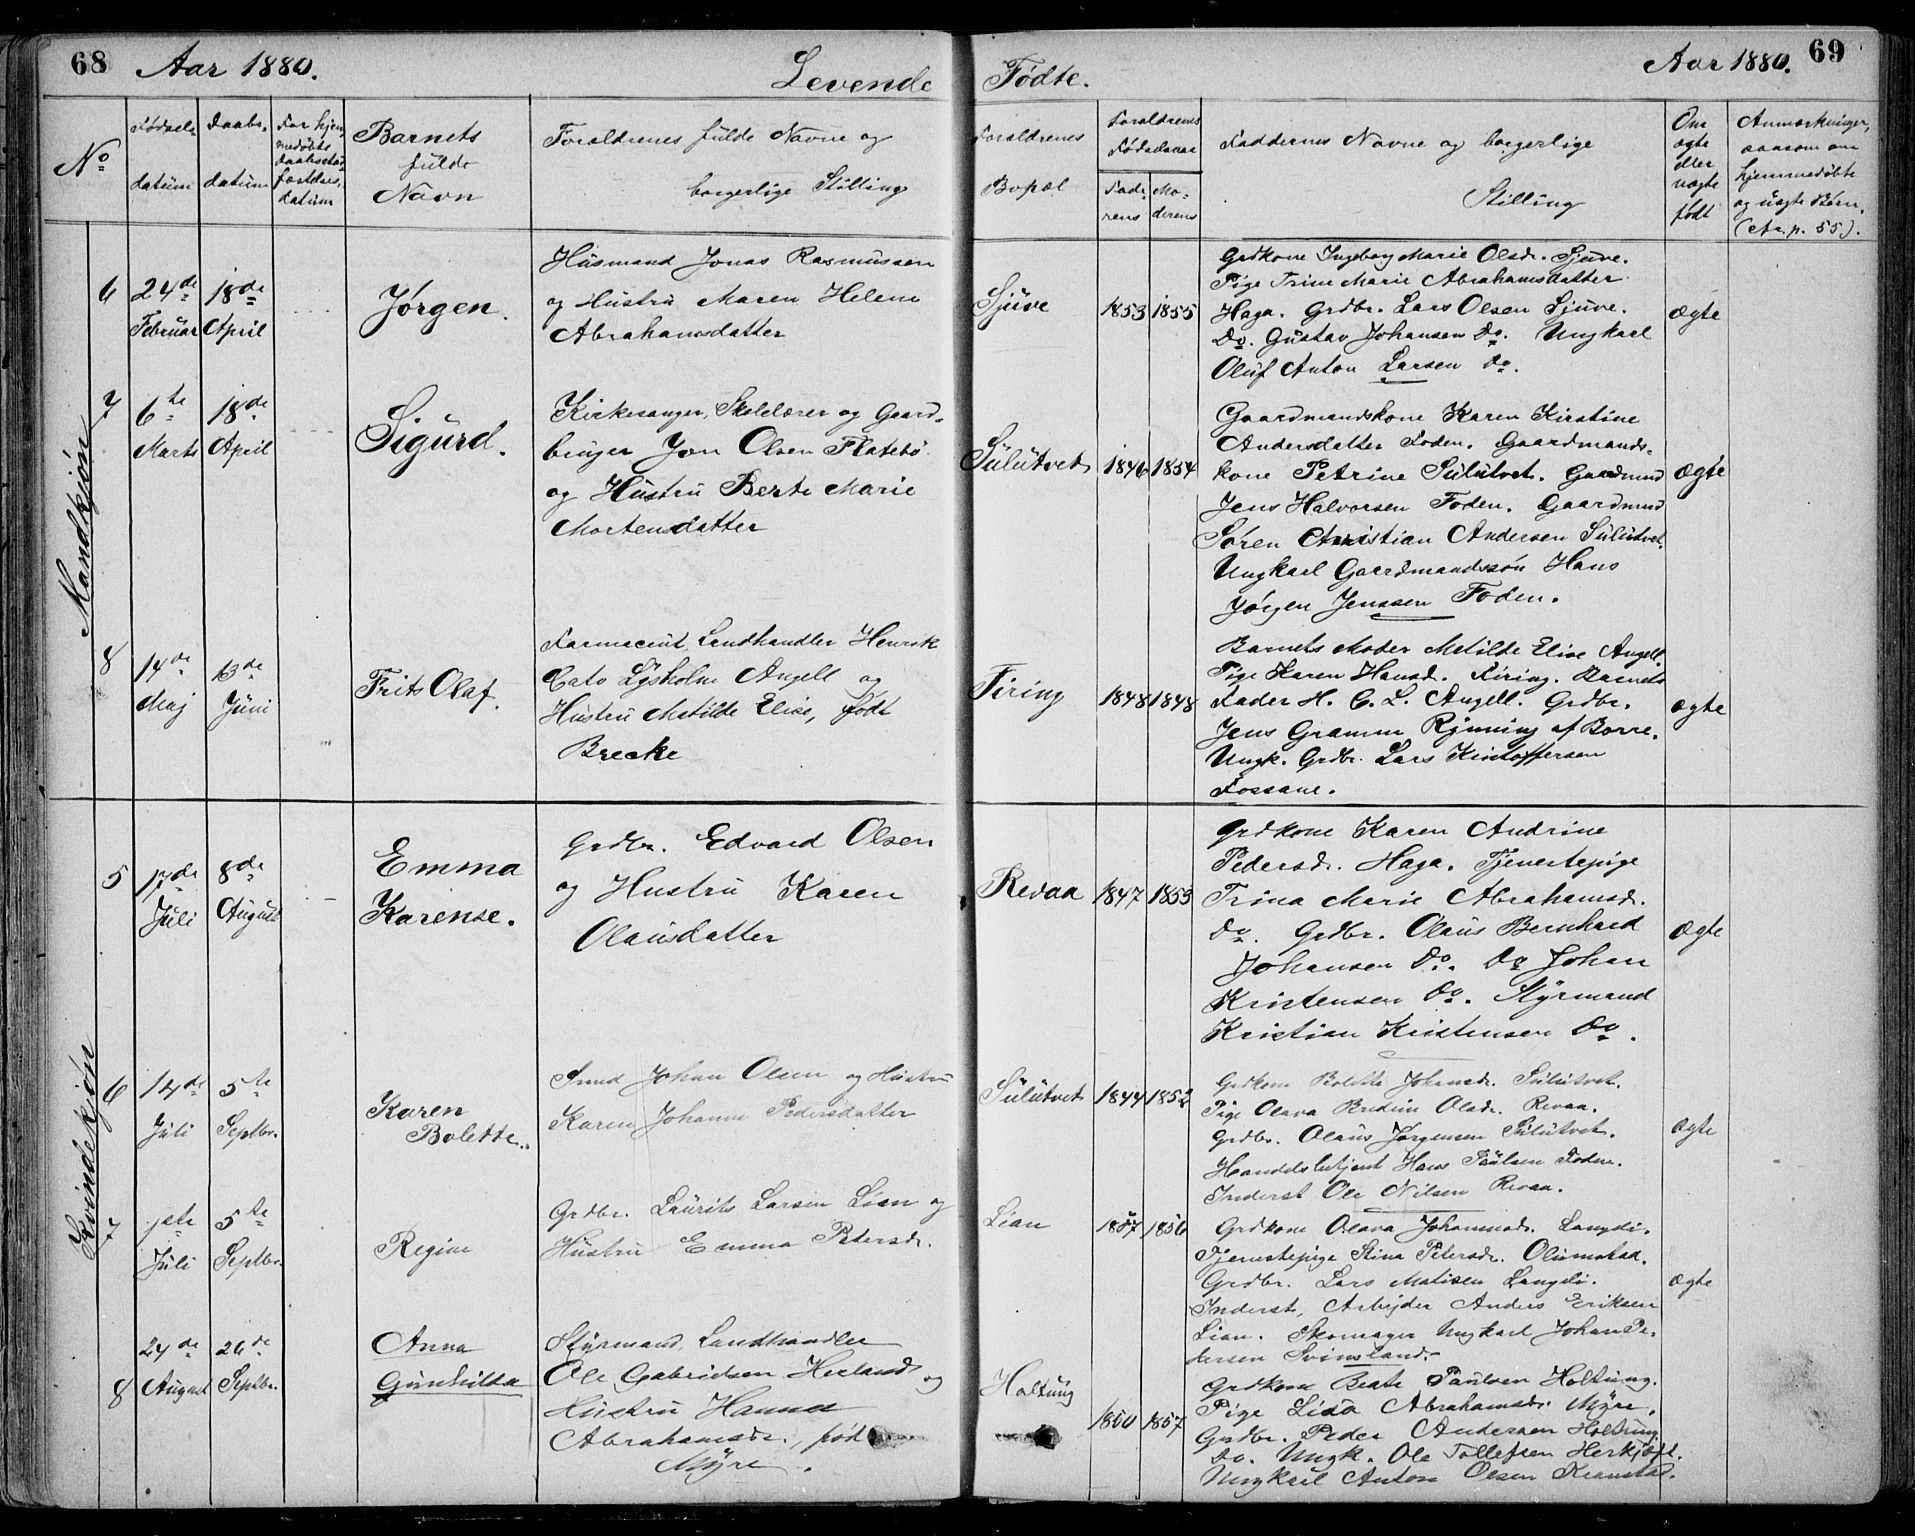 68 Aar 1880. Levende Fødte. Aar 1880. 69
No
Fødsels datum
Daabs- datum
Barnets fulde Navn
Forældrenes fulde Navne og borgerlige Stilling
Forældrenes Bopæl
Forældrenes Fødselsaar
Fade- rens
Mo- derens
Faddernes Navne og borgerlige Stilling
Om ægte eller uægte født
Anmærkninger, saasom om hjemmedøbte og uægte Børn. (Anm. p. 55).
Mandkjøn
6
24de Februar
18de April
Jørgen.
Husmand Jonas Rasmussen
og Hustru Maren Helene
Abrahamsdatter
Sjuve
1853
1855
Grdkone Ingeborg Marie Olsdr. Sjuve.
Pige Trine Marie Abrahamsdatter
Haga. Grdbr. Lars Olsen Sjuve.
Do. Gustav Johansen Do. Ungkarl
Oluf Anton Larsen Do.
ægte
7
6te Marts
18de April
Sigurd.
Kirkesanger, Skolelærer og Gaard-
bruger Jon Olsen Flatebø
og Hustru Berte Marie
Mortensdatter
Sulutvet
1846
1854
Gaardmandskone Karen Kirstine
Andersdatter Foden. Gaardmands-
kone Petrine Sulutvet. Gaardmnd
Jens Halvorsen Foden. Gaardmnd
Søren Christian Andersen Sulutvet.
Ungkarl Gaardmandssøn Hans
Jørgen Jenssen Foden.
ægte
8
14de Maj
13de Juni
Frits Olaf.
Farmaceut, Landhandler Henrik
Cato Lysholm Angell og
Hustru Matilde Elise, født
Brecke
Firing
1848
1848
Barnets Moder Matilde Elise Angell.
Pige Karen Hansd. Firing. Barnets
Fader H. C. L. Angell. Grdbr.
Jens Gramm Rynning af Borre.
Ungk. Grdbr. Lars Kristoffersen
Fossane.
ægte
Kvindekjøn
5
17de Juli
8de August
Emma
Karense.
Grdbr. Edvard Olsen
og Hustru Karen
Olausdatter
Revaa
1847
1853
Grdkone Karen Andrine
Pedersdr. Haga. Tjenestepige
Trina Marie Abrahamsd.
Do. Grdbr. Olaus Bernhard
Johansen Do. Do Johan
Kristensen Do. Styrmand
Kristian Kristensen Do.
ægte
6
14de Juli
5te Septbr.
Karen
Bolette.
Johan Olsen og Hustru
Karen Johanne Pedersdatter
Sulutvet
1844
1852
Grdkone Bolette Johansdr. Sulutvet.
Pige Olava Olsdr. Revaa.
Grdbr. Olaus Jørgensen Sulutvet.
Handelsbetjent Hans Paulsen Foden.
Inderst Ole Nilsen Revaa.
ægte
7
1ste Juli
5te Septbr.
Regine
Grdbr. Laurits Larsen Lian og
Hustru Emma Petersdr.
Lian
1857
1856
Grdkone Olava Johannesd. Langeli.
Tjenestepige Stina Petersdr. Olumstad.
Grdbr. Lars Matisen Langeli.
Inderst, Arbejder Anders Eriksen
Lian. Skomager Ungkarl Johan Pe-
dersen Svinsland.
ægte
8
24de August
26de Septbr.
Anna
Gunhilda
Styrmand, Landhandler
Ole Gabrielsen Herland og
Hustru Hanna
Abrahamsdr., født
Myre.
Holtung
1850
1857
Grdkone Beate Paulsen Holtung.
Pige Lisa Abrahamsdr. Myre.
Grdbr. Peder Andersen Holtung.
Do. Ungk. Ole Tollefsen
Ungkarl Anton Olsen